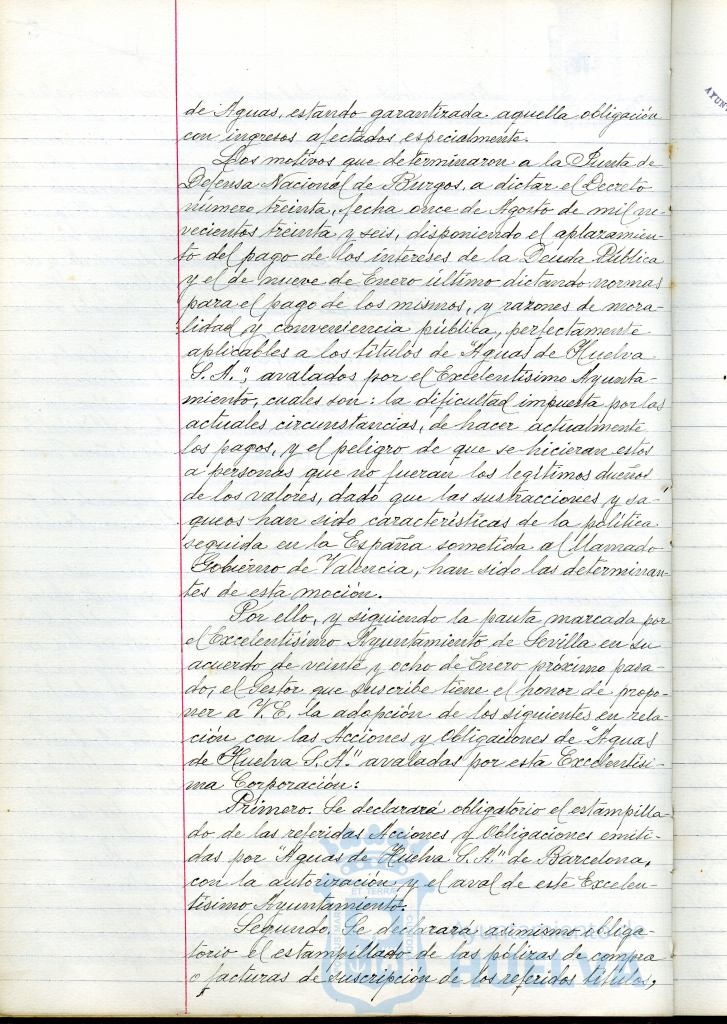 de Aguas, estando garantizada aquella obligación
con ingresos afectados especialmente.
Los motivos que determinaron a la Junta de
Defensa Nacional de Burgos, a dictar el Decreto
número treinta, fecha once de Agosto de mil no-
vecientos treinta y seis, disponiendo el aplazamien-
to del pago de los intereses de la Deuda Pública
y el de nueve de Enero último dictando normas
para el pago de los mismos, y razones de mora-
lidad y conveniencia pública, perfectamente
aplicables a los títulos de "Aguas de Huelva
S.A.", avalados por el Excelentísimo Ayunta-
miento, cuales son: la dificultad impuesta por las
actuales circunstancias, de hacer actualmente
los pagos, y el peligro de que se hicieran estos
a personas que no fueran los legítimos dueños
de los valores, dado que las sustracciones y sa-
queos han sido características de la política
seguida en la España sometida al llamado
Gobierno de Valencia, han sido las determinan-
tes de esta moción.
Por ello, y siguiendo la pauta marcada por
el Excelentísimo Ayuntamiento de Sevilla en su
acuerdo de veinte y ocho de Enero próximo pasa-
do, el Gestor que suscribe tiene el honor de propo-
ner a V.E. la adopción de los siguientes en rela-
ción con las Acciones y Obligaciones de "Aguas
de Huelva S.A." avaladas por esta Excelentísi-
ma Corporación:
Primero. Se declarará obligatorio el estampilla-
do de las referidas Acciones y Obligaciones emiti-
das por "Aguas de Huelva S.A" de Barcelona,
con la autorización y el aval de este Excelen-
tísimo Ayuntamiento.
Segundo. Se declarará asimismo obliga-
torio el estampillado de las pólizas de compra
o facturas de suscripción de los referidos títulos,
AYUN
ET TERRAE
HUELVA